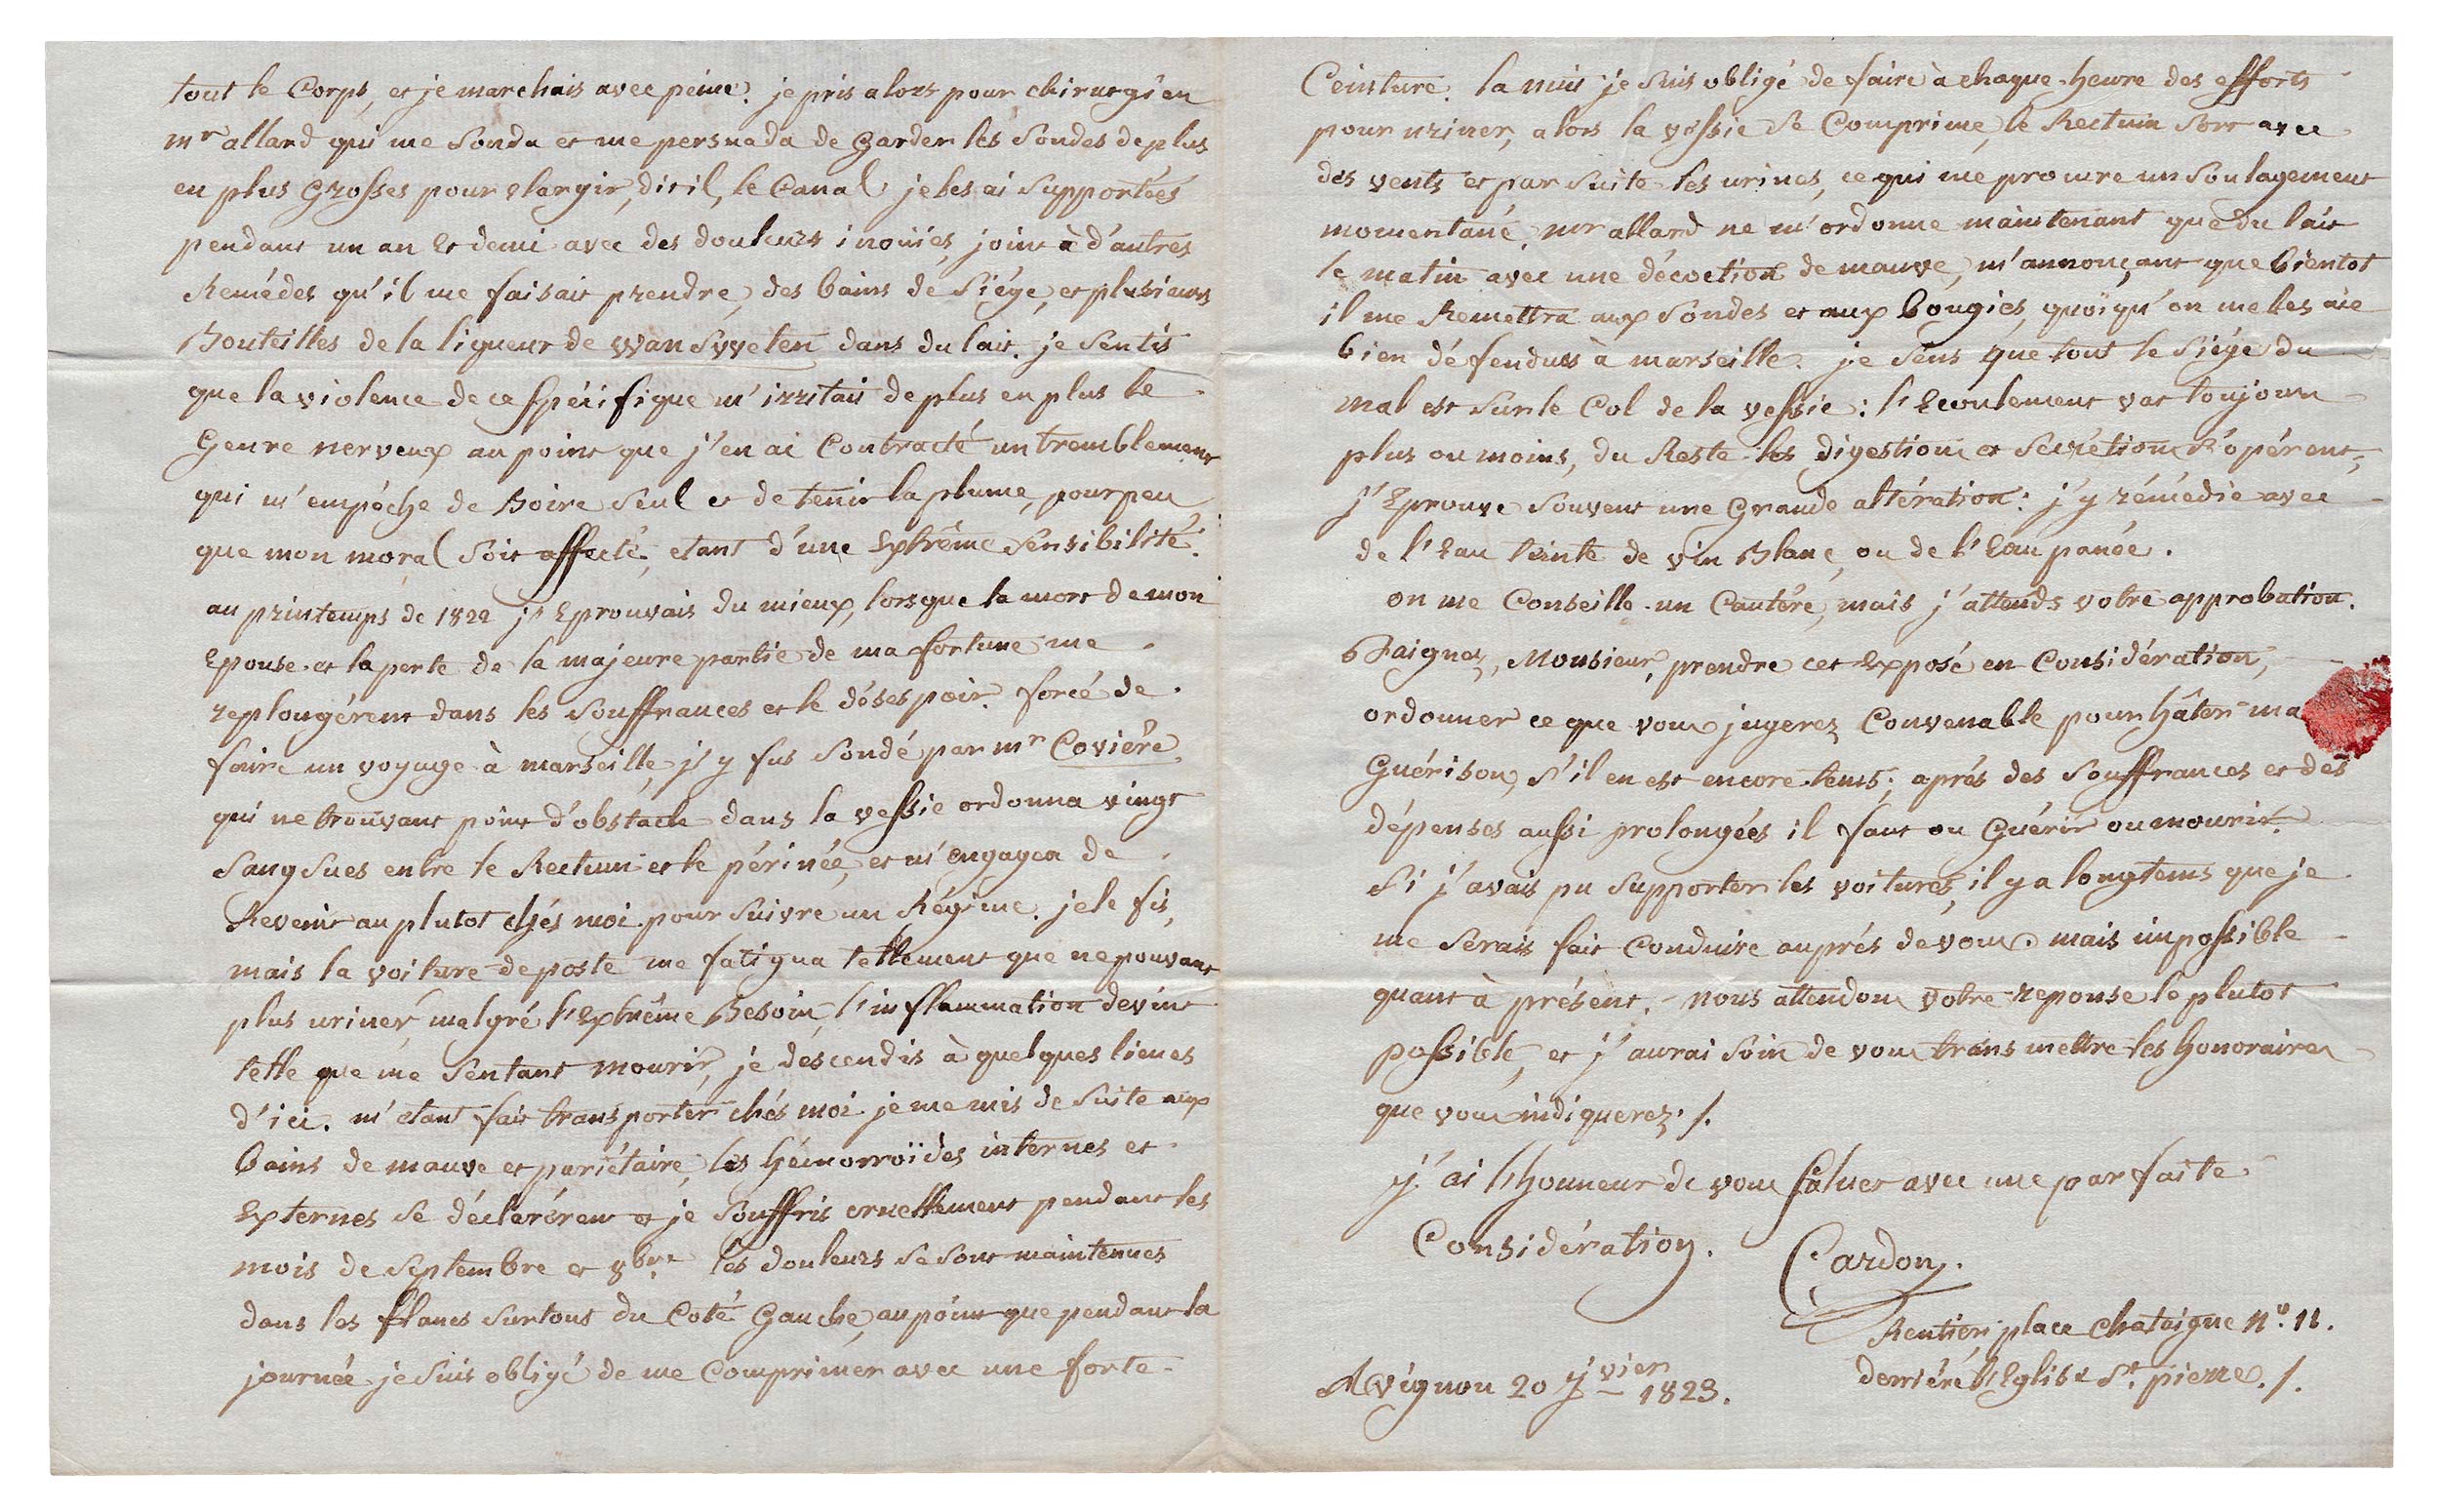 tout le Corps, et je marchais avec peine. je pris alors pour chirurgien
mr allard qui me Sonda et me persuada de Garder les Sondes de plus
en plus Grosses pour elargir, dit il, le Canal. je les ai Supportées
pendant un an Et demi avec des douleurs inoüies, joint à d'autres
Remédes qu'il me faisait prendre, des bains de Siége, et plusieurs
Bouteilles de la liqueur de Wan Swveten dans du lait. je Sentis
que la violence de ce Spécifique m'irritait de plus en plus le
Genre nerveux au point que j'en ai Contracté un tremblement
qui m'empéche de Boire Seul et de tenir la plume, pour peu
que mon moral Soit affecté, etant d'une Extrême Sensibilité.
au printemps de 1822 j'Eprouvais du mieux, lorsque la mort de mon
Epouse et la perte de la majeure partie de ma fortune me
replongérent dans les Souffrances et le désespoir. forcé de
faire un voyage à marseille, j'y fus Sondé par mr Covière
qui ne trouvant point d'obstacle dans la vessie ordonna vingt
SangSues entre le Rectum et le périnée, et m'engagea de
Revenir au plutot chés moi pour Suivre un Régime. je le fis,
mais la voiture de poste me fatigua tellement que ne pouvant
plus uriner, malgré l'Extrême Besoin, l'inflammation devint
telle que me Sentant mourir, je descendis à quelques lieues
d'ici. m'etant fait transporter chés moi je me mis de Suite aux
bains de mauve et pariétaire, les hémorroïdes internes et
Externes Se déclarérent et je Souffris cruellement pendant les
mois de Septembre et 8bre les douleurs Se Sont maintenues
dans les flancs Surtout du Coté Gauche, au point que pendant la
journée je Suis obligé de me Comprimer avec une forte
Ceinture. la nuit je Suis obligé de faire à chaque heure des efforts
pour uriner, alors la vessie Se Comprime, le Rectum Sort avec
des vents et par Suite les urines, ce qui me procure un Soulagement
momentané. mr allard ne m'ordonne maintenant que du lait
le matin avec une décoction de mauve, m'annonçant que bientot
il me Remettra aux Sondes et aux bougies, quoiqu'on me les aie
bien défendues à marseille. je Sens que tout le Siége du
mal est Sur le Col de la vessie: l'Ecoulement vat toujours
plus ou moins, du Reste les digestions et Secrétions S'opérent,
j'Eprouve Souvent une Grande altération: j'y rémédie avec
de l'Eau teinte de vin Blanc, ou de l'Eau panée.
on me Conseille un Cautére, mais j'attends votre approbation.
Daignez, Monsieur, prendre cet Exposé en Considération,
ordonner ce que vous jugerez Convenable pour hâter ma
Guérison, S'il en est encore tems; aprés des Souffrances et des
dépenses aussi prolongées il faut ou Guérir ou mourir.
Si j'avais pu Supporter les voitures, il y a longtems que je
me Serais fait Conduire auprés de vous. mais impossible
quant à présent. nous attendons votre reponse le plutot
possible, et j'aurai Soin de vous transmettre les honoraires
que vous indiquerez ./.
j'ai l'honneur de vous Saluer avec une parfaite
Considération.
Cardon.
Rentier, place Chataigne n.º 11.
derriére l'Eglise St. pierre ./.
Avignon 20 jvier 1823.